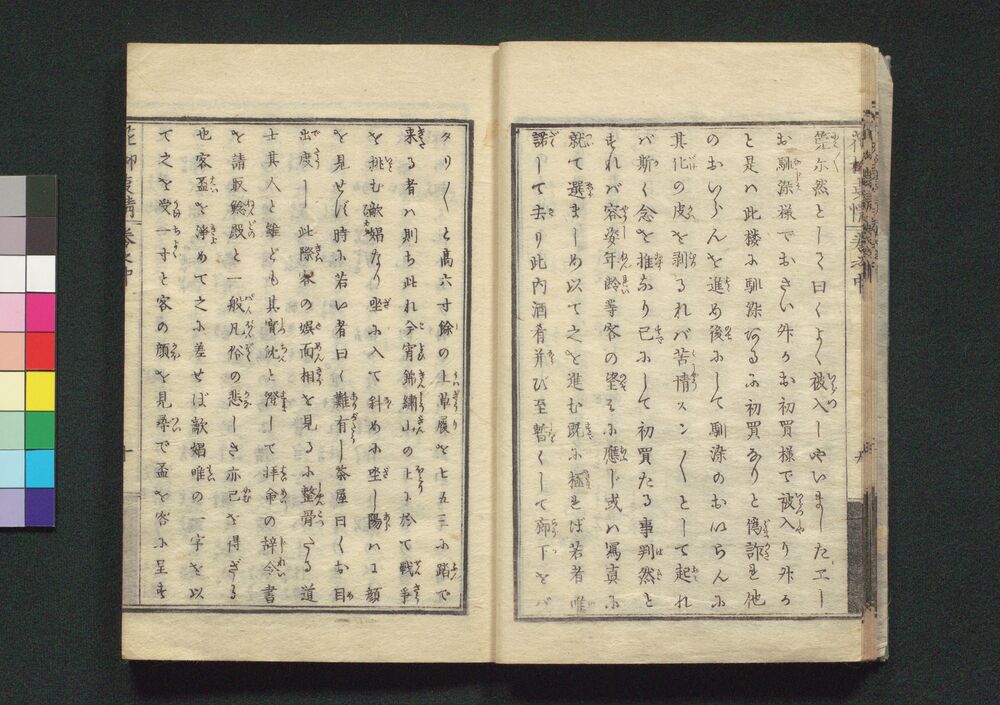 莞尓然として曰くよく被入しやいましたエー
お馴染様でおさい升るお初買様で被入り升る
と是ハ此楼ふ馴染あるふ初買なりと偽詐を他
のおいらんを進め後ふして馴染のおいらんふ
其化の皮を剥るれバ苦情ヌン〱として起れ
バ斯く念を推なり已ふして初買たる事判然と
すれバ容姿年齢等客の望みふ應じ或ハ寫真ふ
就て選ましめ以て之を進む既ふ極せば若者唯
諾して去り此内酒肴并び至暫くして廊下をバ
タリ〱と高六寸餘の上草履を七五三ふ踏で
来る者ハ則ち此れ今宵錦繍山の上ふ於て戦争
を挑む敵娼なり坐ふ入て斜めふ坐し陽ハふ顔
を見せバ時ふ若い者曰く難有し茶屋曰くお目
出度し此際客の娯面相を見るふ整骨さる道
士其人と雖ども其實沈と澄して拝命の辞令書
を請取鯰殿と一般凡俗の悲しき亦已を得ざる
也客盃を浄めて之ふ差せば敵娼唯の一字を以
て之を受一寸と客の顔を見尋で盃を客ふ呈す
花柳事情 巻之中